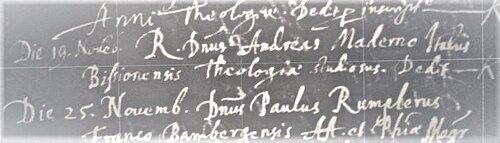 Anni Theologiæ. Dedit inscript
Die 19. Noveb. R. Dnus Andreas Maderno Italus
Bissionensis Theologiæ studiosus. Dedit
Die 25. Novemb. Dnus Paulus Rumplerus
Franco Bambergensis AA. et Phiæ Magr